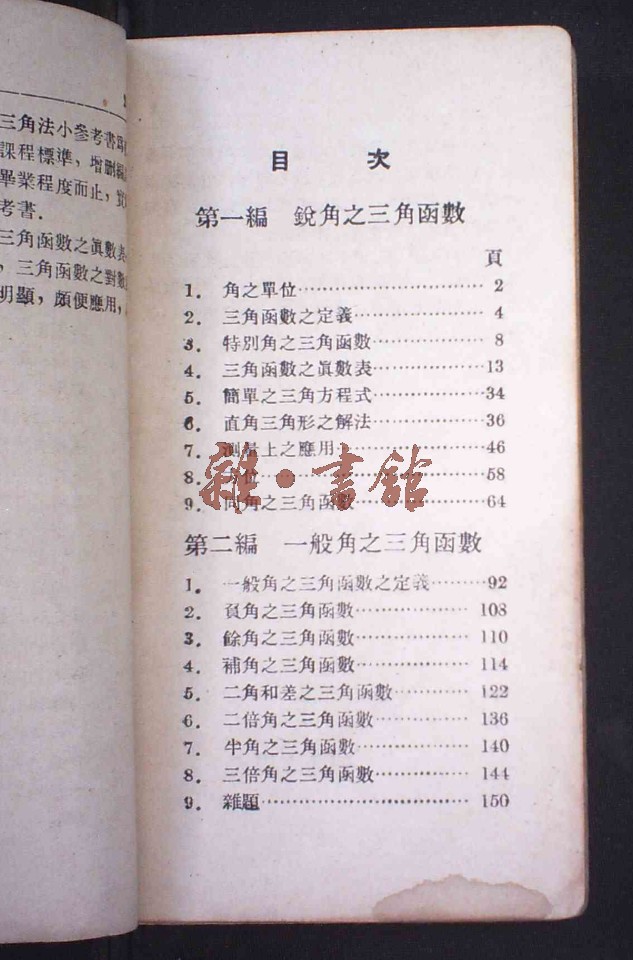 三角法小參考書爲
課程標準，增删編
畢業程度而止，實
考書．
三角函數之眞數表
，三角函數之對數
明顯，頗便應用，
目 次
第一編 銳角之三角函數
頁
1． 角之單位 2
2． 三角函數之定義 4
3． 特別角之三角函數 8
4． 三角函數之眞數表 13
5． 簡單之三角方程式 34
6． 直角三角形之解法 36
7． 測量上之應用 46
8． 方位 58
9． 同角之三角函數 64
雜·書館
第二編 一般角之三角函數
1． 一般角之三角函數之定義 92
2． 負角之三角函數 108
3． 餘角之三角函數 110
4． 補角之三角函數 114
5． 二角和差之三角函數 122
6． 二倍角之三角函數 136
7． 半角之三角函數 140
8． 三倍角之三角函數 144
9． 雜題 150